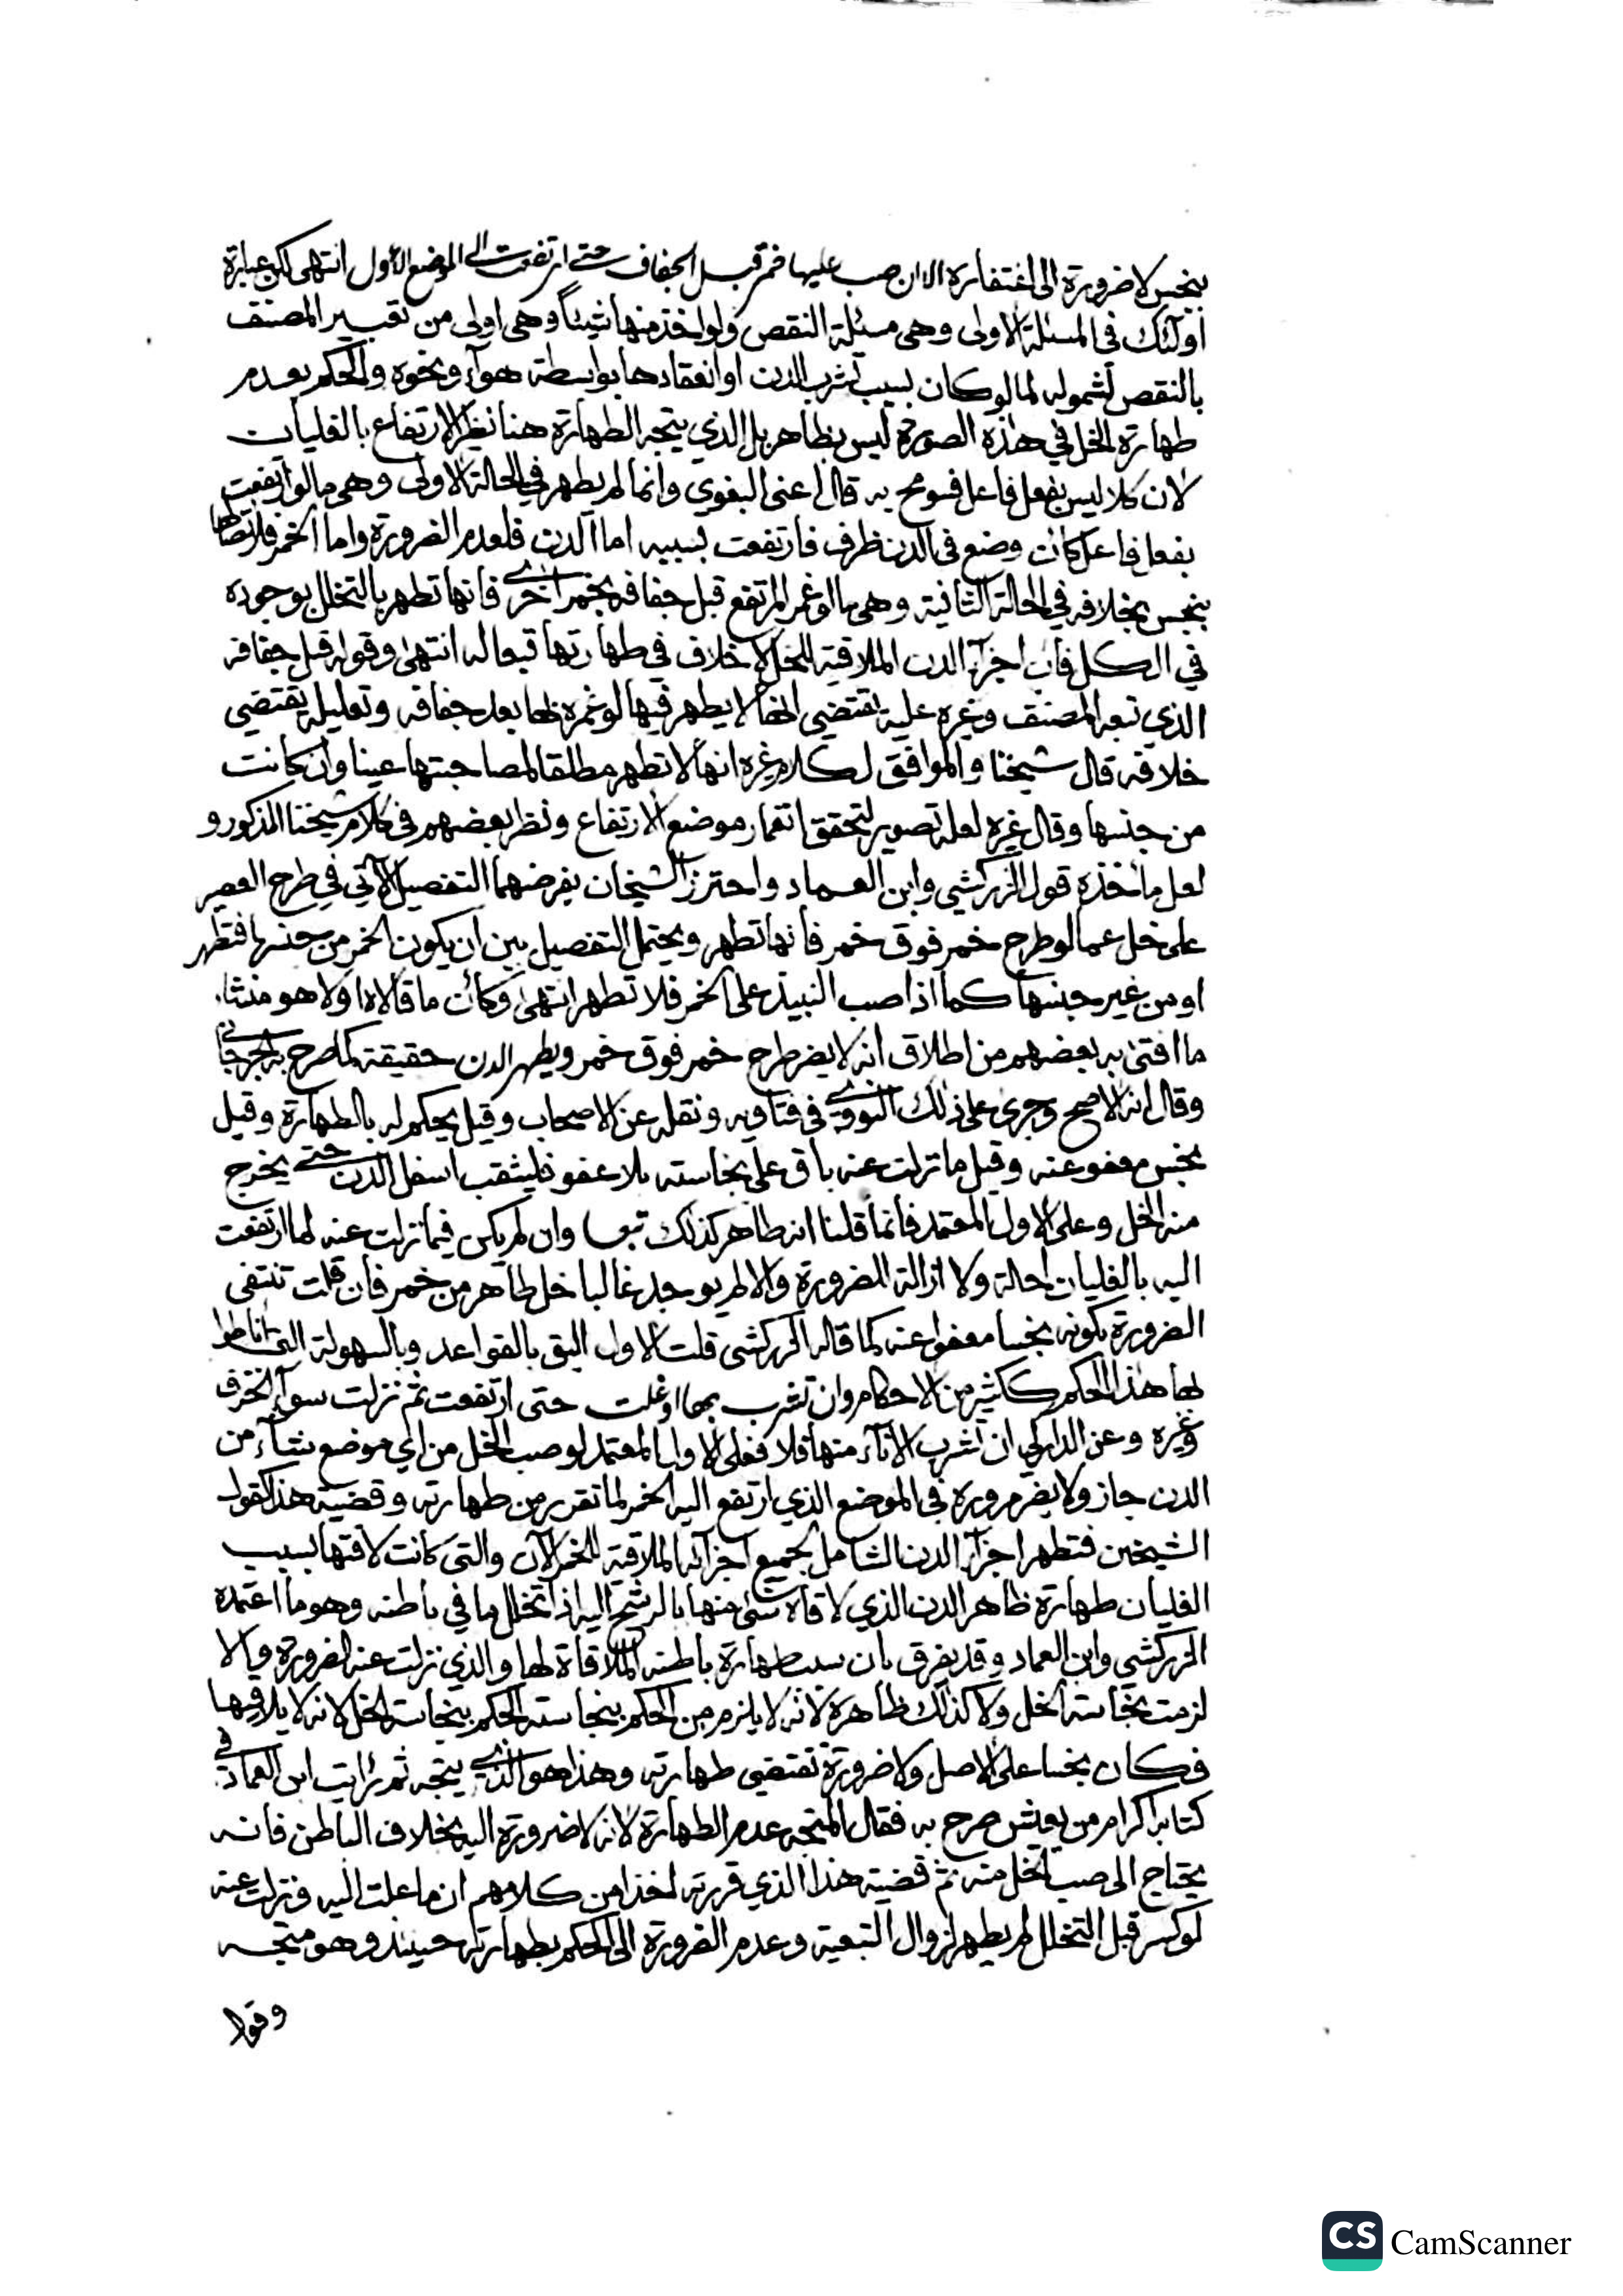 بنجس لا ضرورة الى اغتفاره الا ان صب عليها خمر قبل الجفاف حتى ارتفعت الى الموضع الاول انتهى لكن عبارة
اولئك في المسئلة الاولى وهي مسئلة النقص ولو اخذ منها شيئا وهي اولى من تعبير المصنف
بالنقص لشموله لما لو كان بسبب تشرب الدن او انعقادها بواسطة هواء ونحوه والحكم بعدم
طهارة الخل في هذه الصورة ليس بظاهر بل الذي يتجه الطهارة هنا نظير الارتفاع بالغليان
لان كلا ليس بفعل فاعل فسومح به قال اعنى البغوي وانما لم يطهر في الحالة الاولى وهي ما لو ارتفعت
بفعل فاعل كان وضع في الدن ظرف فارتفعت بسببه اما الدن فلعدم الضرورة واما الخمر فلاتصالها
بنجس بخلافه في الحالة الثانية وهي ما لو غمر المرتفع قبل جفافه بخمر اخرى فانها تطهر بالتخلل بوجوده
في الكل فان اجزاء الدن الملاقية للخل لا خلاف في طهارتها تبعا له انتهى وقوله قبل جفافه
الذي تبعه المصنف وغيره عليه يقتضي انها لا يطهر فيما لو غمره بها بعد جفافه وتعليله يقتضي
خلافه قال شيخنا والموافق لكلام غيره انها لا تطهر مطلقا لمصاحبتها عينا وان كانت
من جنسها وقال غيره لعله تصوير لتحقق انغمار موضع الارتفاع ونظر بعضهم في كلام شيخنا المذكور و
لعل ماخذه قول الزركشي وابن العماد واحترز الشيخان بفرضهما التفصيل الآتي في طرح العصير
على خل عما لو طرح خمر فوق خمر فانها تطهر ويحتمل التفصيل بين ان يكون الخمر من جنسها فتطهر
او من غير جنسها كما اذا صب النبيذ على الخمر فلا تطهر انتهى وكأن ما قالاه اولا هو منشاء
ما افتى به بعضهم من اطلاق انه لا يضر طرح خمر فوق خمر ويطهر الدن حقيقة كما صرح به الجرجاني
وقال انه الاصح وجرى على ذلك النووي في فتاويه ونقله عن الاصحاب وقيل يحكم له بالطهارة وقيل
نجس معفو عنه وقيل ما نزلت عنه باق على نجاسته بلا عفو فليثقب اسفل الدن حتى يخرج
منه الخل وعلى الاول المعتمد فانما قلنا انه طاهر كذلك تبعا وان لم يكن فيما نزلت عنه لما ارتفعت
اليه بالغليان احالة ولا ازالة للضرورة والا لم يوجد غالبا خل طاهر من خمر فان قلت تنتفى
الضرورة بكونه نجسا معفوا عنه كما قاله الزركشى قلت الاول اليق بالقواعد وبالسهولة التى اناطوا
لها هذا الحكم ككثير من الاحكام وان تشرب بها او غلت حتى ارتفعت ثم نزلت سواء الخزف
وغيره وعن الداركي ان تشرب الاناء منها فلا فعلى الاول المعتمد لو صب الخل من اي موضع شاء من
الدن جاز ولا يضر مروره في الموضع الذي ارتفع اليه الخمر لما تقرر من طهارته وقضية هذا كقول
الشيخين فتطهر اجزاء الدن الشامل لجميع اجزائه الملاقية للخمر الآن والتى كانت لاقتها بسبب
الغليان طهارة ظاهر الدن الذي لاقاه شئ منها بالرشح اليه اذا تخلل ما في باطنه وهو ما اعتمده
الزركشي وابن العماد وقد يفرق بان سبب طهارة باطنه الملاقاة لها والذي نزلت عنه لضرورة والا
لزمت نجاسة الخل ولا كذلك ظاهره لانه لا يلزم من الحكم بنجاسته الحكم بنجاسة الخل لانه لا يلاقيها
فكان نجسا على الاصل ولا ضرورة تقتضى طهارته وهذا هو الذي يتجه ثم رايت ابن العماد في
كتابه اكرام من يعيش صرح به فقال المتجه عدم الطهارة لانه لا ضرورة اليه بخلاف الباطن فانه
يحتاج الى صب الخل منه ثم قضية هذا الذي قررته اخذا من كلامهم ان ما علت اليه فنزلت عنه
لو كسر قبل التخلل لم يطهر لزوال التبعية وعدم الضرورة الى الحكم بطهارته حينئذ وهو متجه
وقول
CS CamScanner